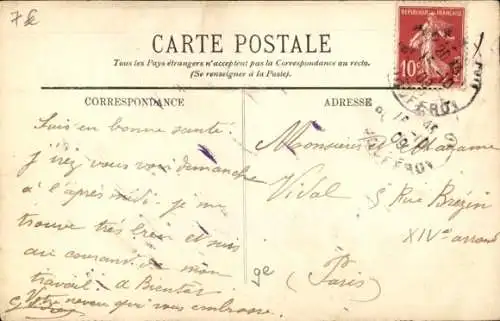 7 €
CARTE POSTALE
Tous les Pays étrangers n'acceptent pas la Correspondance au recto.
(Se renseigner à la Poste).
REPUBLIQUE FRANÇAISE
10
CORRESPONDANCE
ADRESSE
Suis en bonne santé.
j'irez vous voir dimanche
à l'après midi. je me
trouve très bien et suis
au courant de mon
travail. a Bientôt
Votre neveu qui vous embrasse.
Monsieur et Madame
Vidal
5 Rue Brézin
XIVe arrond
(Paris)